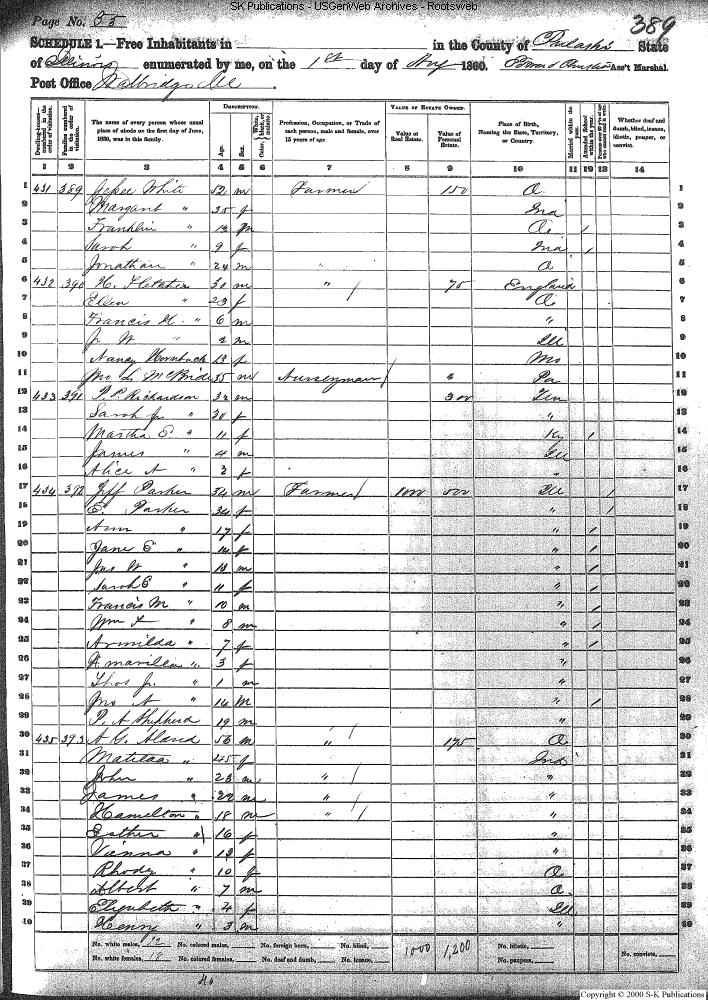 SK Publications - USGenWeb Archives - Rootsweb
Page No. 55
389
SCHEDULE 1.—Free Inhabitants in in the County of Pulaski State
of Illinois enumerated by me, on the 1st day of Aug 1860. Ass't Marshal.
Post Office Ill
Dwelling-houses—numbered in the order of visitation.
Families numbered in the order of visitation.
The name of every person whose usual place of abode on the first day of June, 1860, was in this family.
DESCRIPTION.
Age.
Sex.
Color, White, black, or mulatto.
Profession, Occupation, or Trade of each person, male and female, over 15 years of age.
VALUE OF ESTATE OWNED.
Value of Real Estate.
Value of Personal Estate.
Place of Birth, Naming the State, Territory, or Country.
Married within the year.
Attended School within the year.
Persons over 20 y'rs of age who cannot read & write.
Whether deaf and dumb, blind, insane, idiotic, pauper, or convict.
1 2 3 4 5 6 7 8 9 10 11 12 13 14
1 431 389 White 52 m Farmer 150 O. 1
2 Margaret " 35 f Ind 2
3 Franklin " 12 m O. / 3
4 Sarah " 9 f Ind / 4
5 Jonathan " 24 m " O 5
6 432 390 H. Fletcher 30 m " / 75 England 6
7 Ellen " 23 f O. 7
8 Francis H. " 6 m " 8
9 J. W " 2 m Ill 9
10 Nancy Hornback 13 f Mo 10
11 Jno L McBride 55 m Nurseryman / Pa 11
12 433 391 P. P. Richardson 32 m 300 Ten 12
13 Sarah J. " 30 f " 13
14 Martha E. " 11 f Ky / 14
15 James " 4 m Ill 15
16 Alice A " 2 f " 16
17 434 392 Jeff Parker 54 m Farmer / 1000 500 Ill / 17
18 E. Parker 34 f " / 18
19 Ann " 17 f " / 19
20 Jane E " 14 f " / 20
21 Jas W " 13 m " / 21
22 Sarah E " 11 f " / 22
23 Francis M " 10 m " / 23
24 Wm L " 8 m " / 24
25 Armilda " 7 f " / 25
26 Amarilla " 3 f " 26
27 Thos J. " 1 m " 27
28 Jno A " 14 m " / 28
29 P. A Shepherd 19 m " 29
30 435 393 A G. 56 m " / 175 O. 30
31 Matilda " 45 f Ind 31
32 John " 23 m " / " 32
33 James " 22 m " / " 33
34 Hamelton " 18 m " / " 34
35 Esther " 16 f " 35
36 Vianna " 12 f " 36
37 Rhody " 10 f O. 37
38 Albert " 7 m O. 38
39 Elizabeth " 4 f Ill 39
40 Henry " 3 m " 40
No. white males, 22 No. colored males, No. foreign born, No. blind, 1000 1,200 No. idiotic, No. convicts,
No. white females, 18 No. colored females, No. deaf and dumb, No. insane, No. paupers,
40
Copyright © 2000 S-K Publications